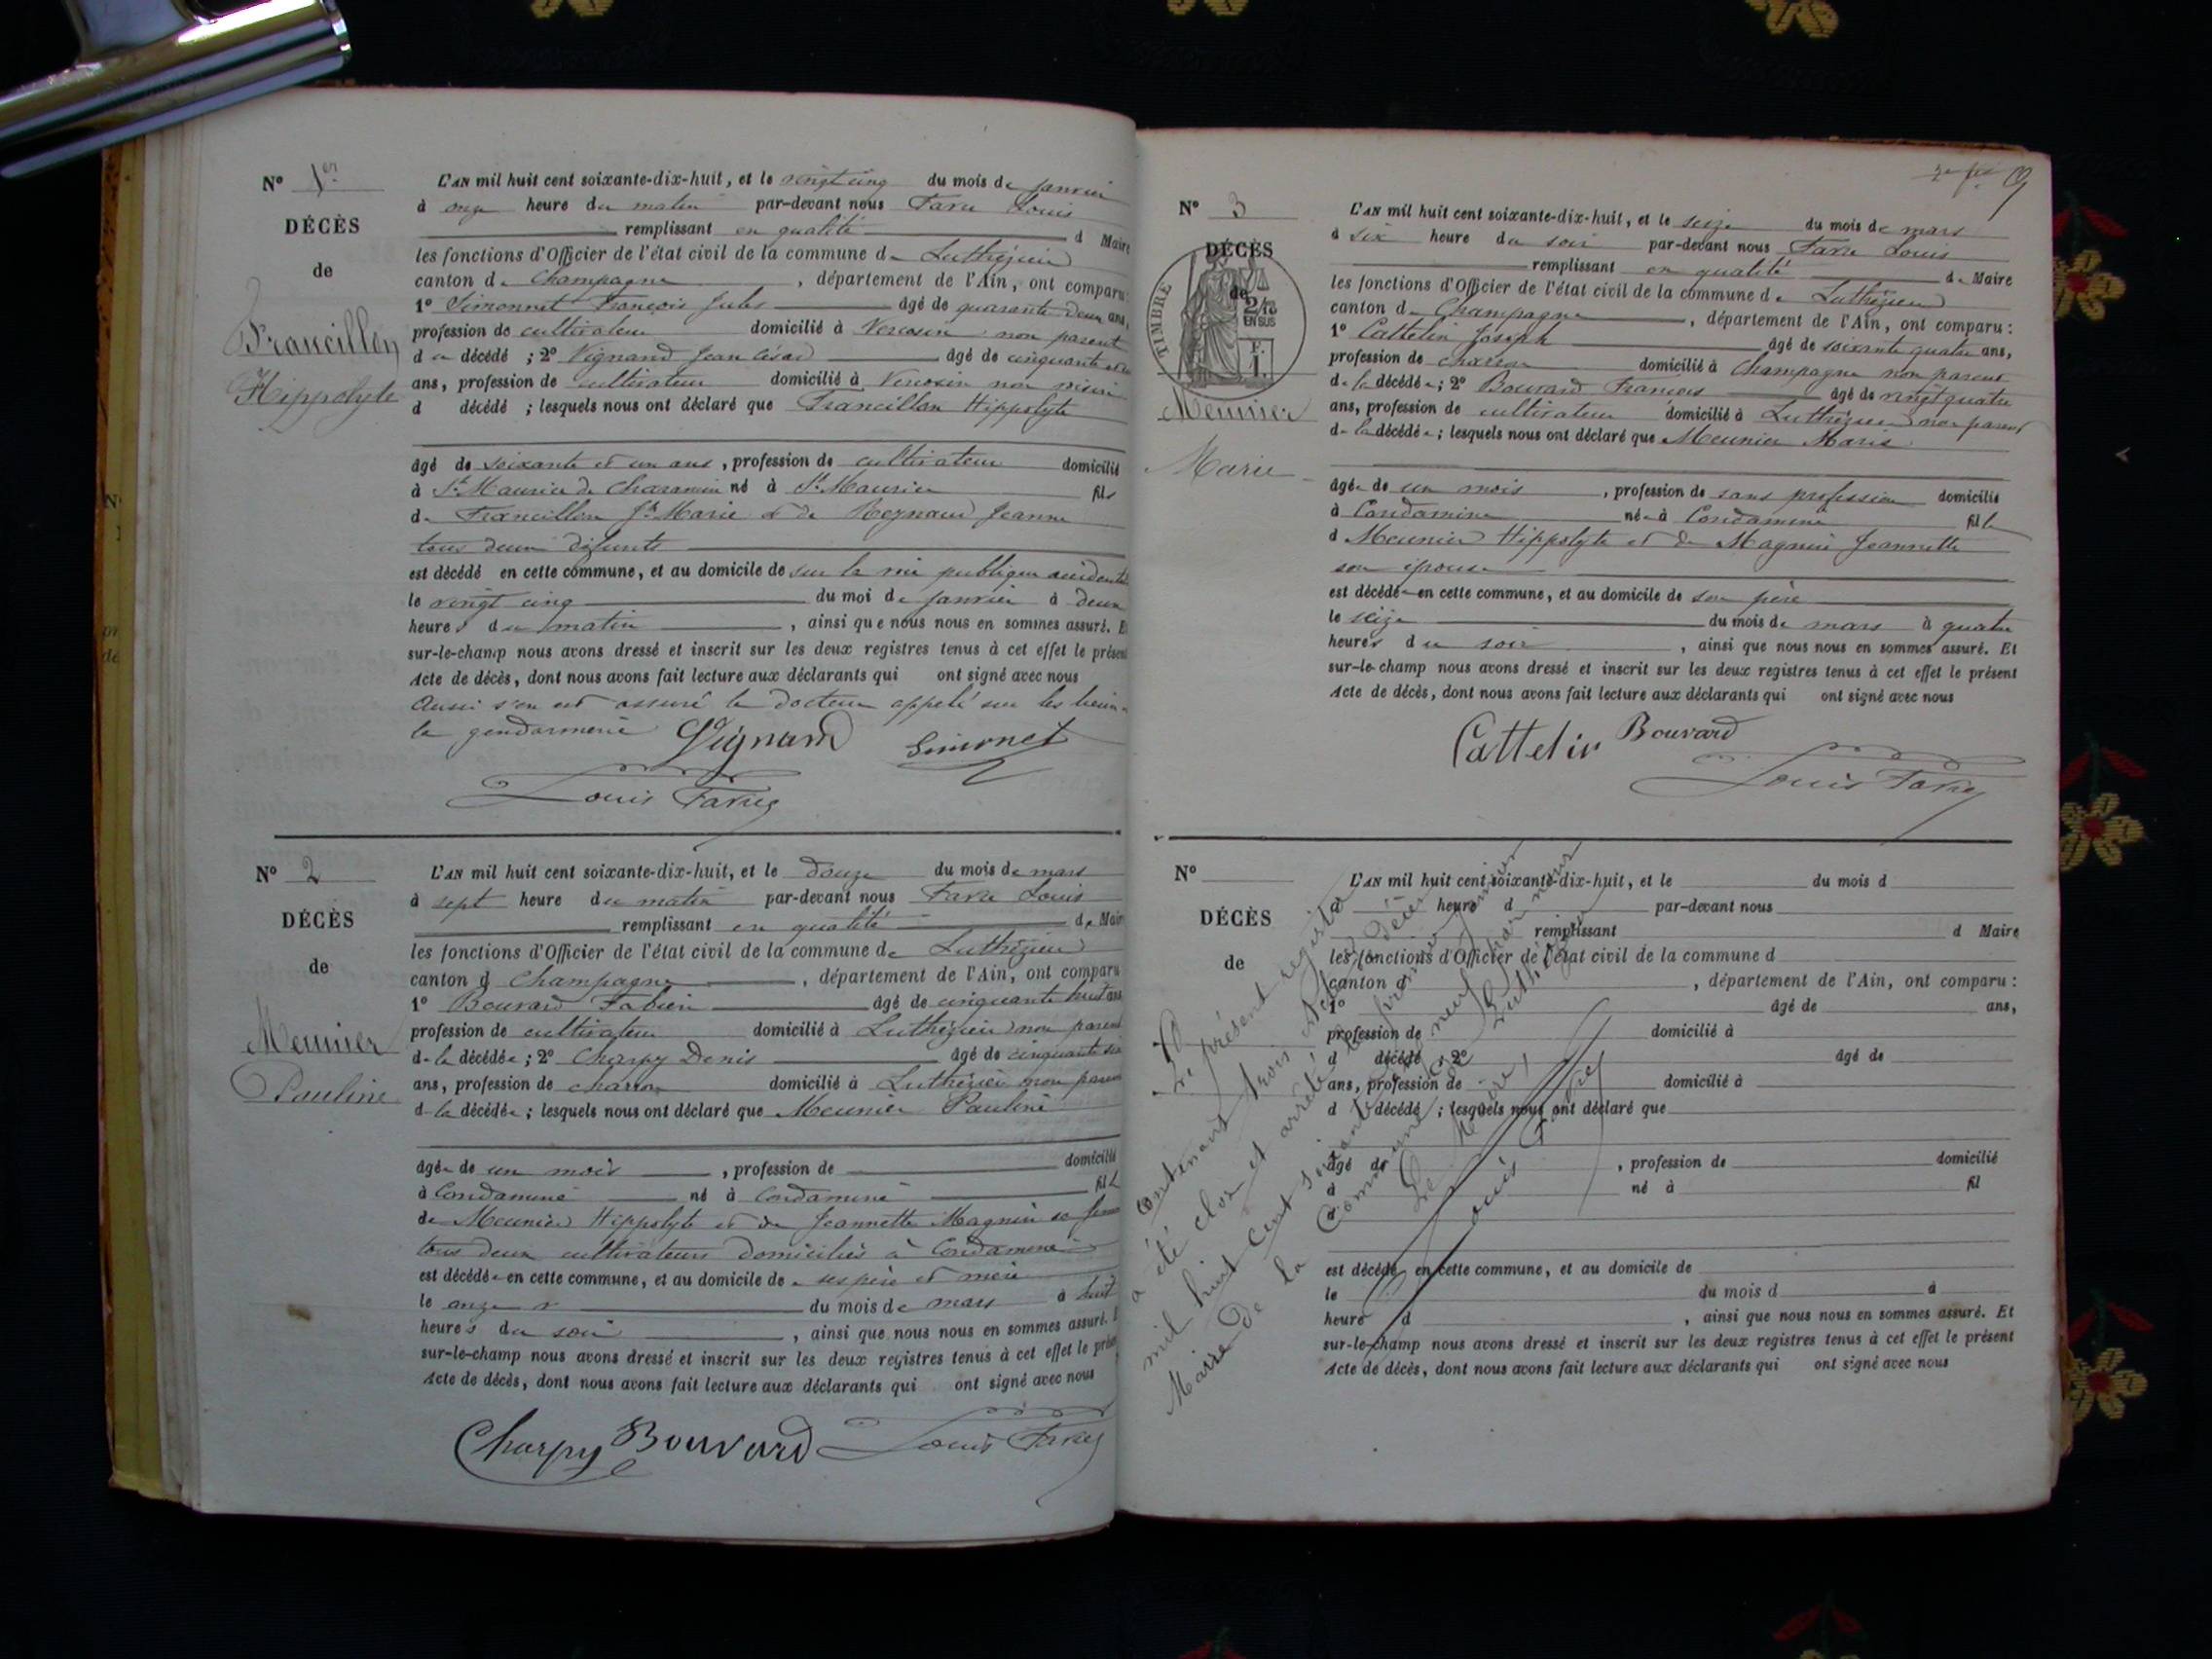 N° 1er
DÉCÈS
de
Francillon
Hippolyte
L'AN mil huit cent soixante-dix-huit, et le vingt cinq du mois de janvier
à onze heure du matin par-devant nous Favre Louis
remplissant en qualité d Maire
les fonctions d'Officier de l'état civil de la commune de Luthézieu
canton de Champagne, département de l'Ain, ont comparu:
1° Simonnet François Jules âgé de quarante deux ans,
profession de cultivateur domicilié à non parent
du décédé; 2° Vignand Jean César âgé de cinquante
ans, profession de cultivateur domicilié à non
d décédé; lesquels nous ont déclaré que Francillon Hippolyte
âgé de soixante et un ans, profession de cultivateur domicilié
à St Maurice de Charancin né à St Maurice fils
de Francillon Jh Marie et de Reynaud Jeanne
tous deux défunts
est décédé en cette commune, et au domicile de sur la voie publique
le vingt cinq du moi de janvier à deux
heures du matin, ainsi que nous nous en sommes assuré. Et
sur-le-champ nous avons dressé et inscrit sur les deux registres tenus à cet effet le présent
Acte de décès, dont nous avons fait lecture aux déclarants qui ont signé avec nous
Aussi s'en est assuré le docteur appelé sur les lieux
la gendarmerie Vignand Simonet
Louis Favre
N° 2
DÉCÈS
de
Meunier
Pauline
L'AN mil huit cent soixante-dix-huit, et le douze du mois de mars
à sept heure du matin par-devant nous Favre Louis
remplissant en qualité de Maire
les fonctions d'Officier de l'état civil de la commune de Luthézieu
canton d Champagne, département de l'Ain, ont comparu
1° Bouvard Fabien âgé de cinquante huit ans
profession de cultivateur domicilié à Luthézieu non parent
de la décédée; 2° Charpy Denis âgé de cinquante six
ans, profession de charron domicilié à Luthézieu non parent
de la décédée; lesquels nous ont déclaré que Meunier Pauline
âgée de un mois, profession de domicilié
à Condamine né à Condamine fille
de Meunier Hippolyte et de Jeannette Magnin sa femme
tous deux cultivateurs domiciliés à Condamine
est décédée en cette commune, et au domicile de ses père et mère
le onze du mois de mars à huit
heures du soir, ainsi que nous nous en sommes assuré. Et
sur-le-champ nous avons dressé et inscrit sur les deux registres tenus à cet effet le présent
Acte de décès, dont nous avons fait lecture aux déclarants qui ont signé avec nous
Charpy Bouvard Louis Favre
N° 3
DÉCÈS
de
TIMBRE
2/10
EN SUS
Meunier
Marie
L'AN mil huit cent soixante-dix-huit, et le seize du mois de mars
à six heure du soir par-devant nous Favre Louis
remplissant en qualité de Maire
les fonctions d'Officier de l'état civil de la commune de Luthézieu
canton d Champagne, département de l'Ain, ont comparu:
1° Cattelin Joseph âgé de soixante quatre ans,
profession de charron domicilié à Champagne non parent
de la décédée; 2° Bouvard François âgé de vingt quatre
ans, profession de cultivateur domicilié à Luthézieu non parent
de la décédée; lesquels nous ont déclaré que Meunier Marie
âgée de un mois, profession de sans profession domicilié
à Condamine née à Condamine fille
d Meunier Hippolyte et de Magnin Jeannette
son épouse
est décédée en cette commune, et au domicile de son père
le seize du mois de mars à quatre
heures du soir, ainsi que nous nous en sommes assuré. Et
sur-le-champ nous avons dressé et inscrit sur les deux registres tenus à cet effet le présent
Acte de décès, dont nous avons fait lecture aux déclarants qui ont signé avec nous
Cattelin Bouvard
Louis Favre
N°
DÉCÈS
de
L'AN mil huit cent soixante-dix-huit, et le du mois d
à heure d par-devant nous
remplissant d Maire
les fonctions d'Officier de l'état civil de la commune d
canton d, département de l'Ain, ont comparu:
1° âgé de ans,
profession de domicilié à
d décédé; 2° âgé de
ans, profession de domicilié à
d décédé; lesquels nous ont déclaré que
âgé de, profession de domicilié
à né à fil
d
est décédé en cette commune, et au domicile de
le du mois d à
heure d, ainsi que nous nous en sommes assuré. Et
sur-le-champ nous avons dressé et inscrit sur les deux registres tenus à cet effet le présent
Acte de décès, dont nous avons fait lecture aux déclarants qui ont signé avec nous
Le présent registre
contenant trois actes de décès
a été clos et arrêté le premier janvier
mil huit cent soixante dix neuf par nous
Maire de la Commune de Luthézieu
Le Maire,
Louis Favre